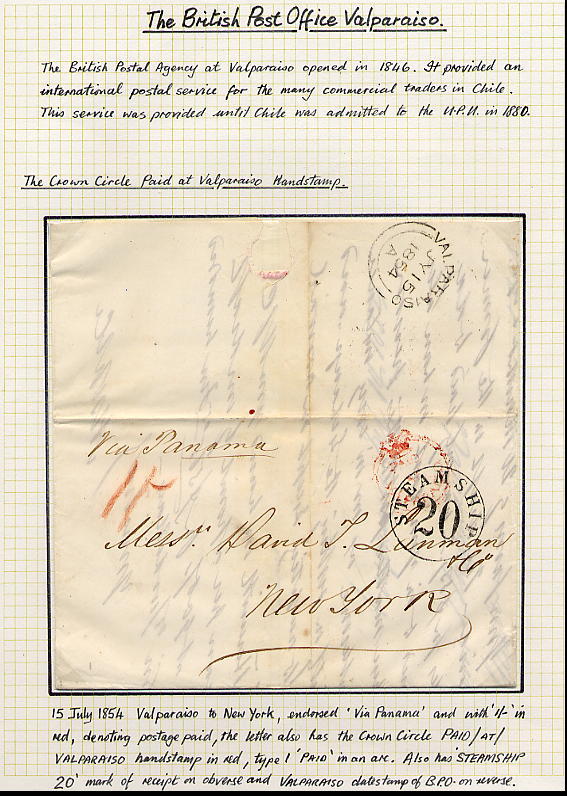 The British Post Office Valparaiso.
The British Postal Agency at Valparaiso opened in 1846. It provided an
international postal service for the many commercial traders in Chile.
This service was provided until Chile was admitted to the U.P.U. in 1880.
The Crown Circle Paid at Valparaiso Handstamp.
VALPARAISO
JY 15
1854
A
Via Panama
1/-
STEAMSHIP
20
Messrs David T. Lanman
& Co
New York
15 July 1854 Valparaiso to New York, endorsed 'Via Panama' and with '1/-' in
red, denoting postage paid, the letter also has the Crown Circle PAID/AT/
VALPARAISO handstamp in red, type 1 'PAID' in an arc. Also has 'STEAMSHIP
20' mark of receipt on obverse and VALPARAISO datestamp of B.P.O. on reverse.